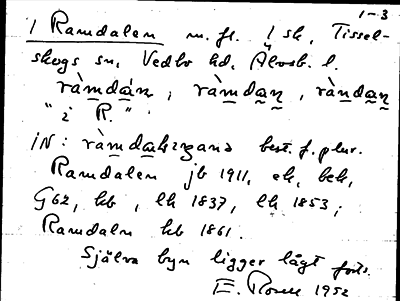 1–3
/ Ramdalen m. fl. i sk, Tissel-
skogs sn, Vedbo hd, Älvsb. l.
ràmdán, ràmdan, ràndan
"i R."
iN: ràmdah best. f. plur.
Ramdalen jb 1911, ek, bek,
G62, kb, lk 1837, lk 1853;
Ramdaln kb 1861.
Själva byn ligger lågt forts.
E. Rosell 1952